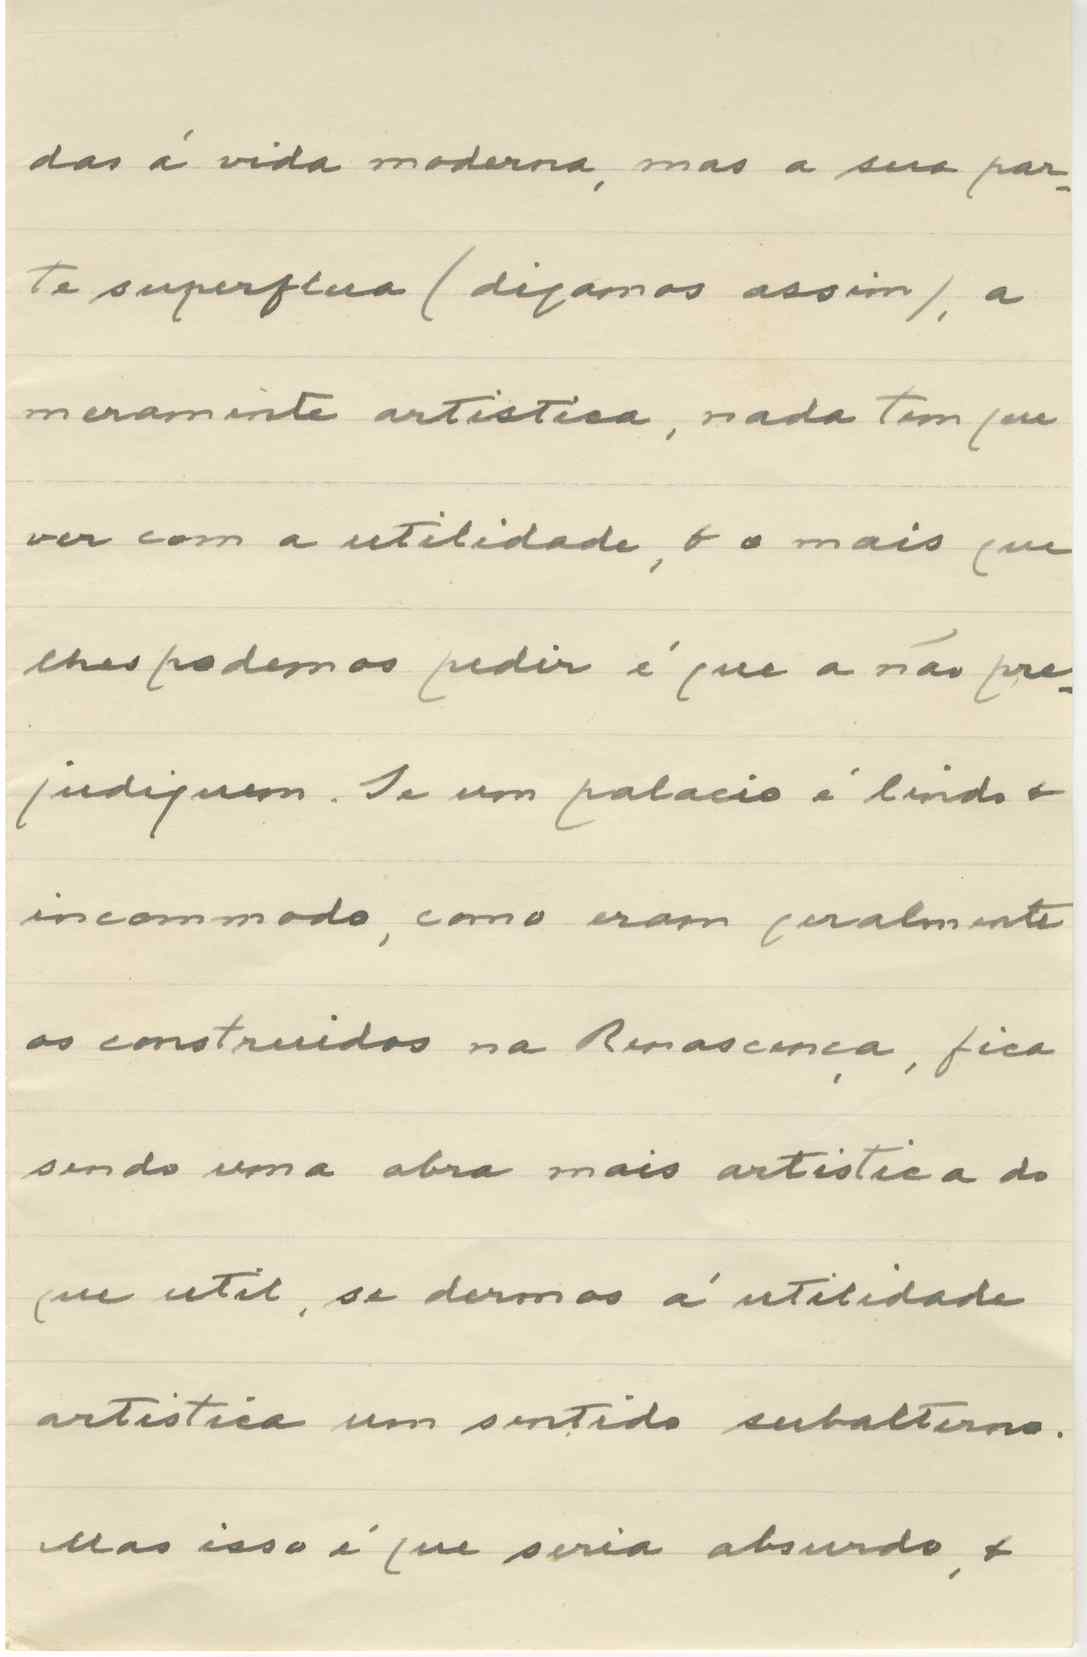 das á vida moderna, mas a sua par-
te superflua (digamos assim), a
meramente artistica, nada tem que
ver com a utilidade, & o mais que
lhes podemos pedir é que a não pre-
judiquem. Se um palacio é lindo &
incommodo, como eram geralmente
os construidos na Renascença, fica
sendo uma obra mais artistica do
que util, se dermos á utilidade
artistica um sentido subalterno.
Mas isso é que seria absurdo, &